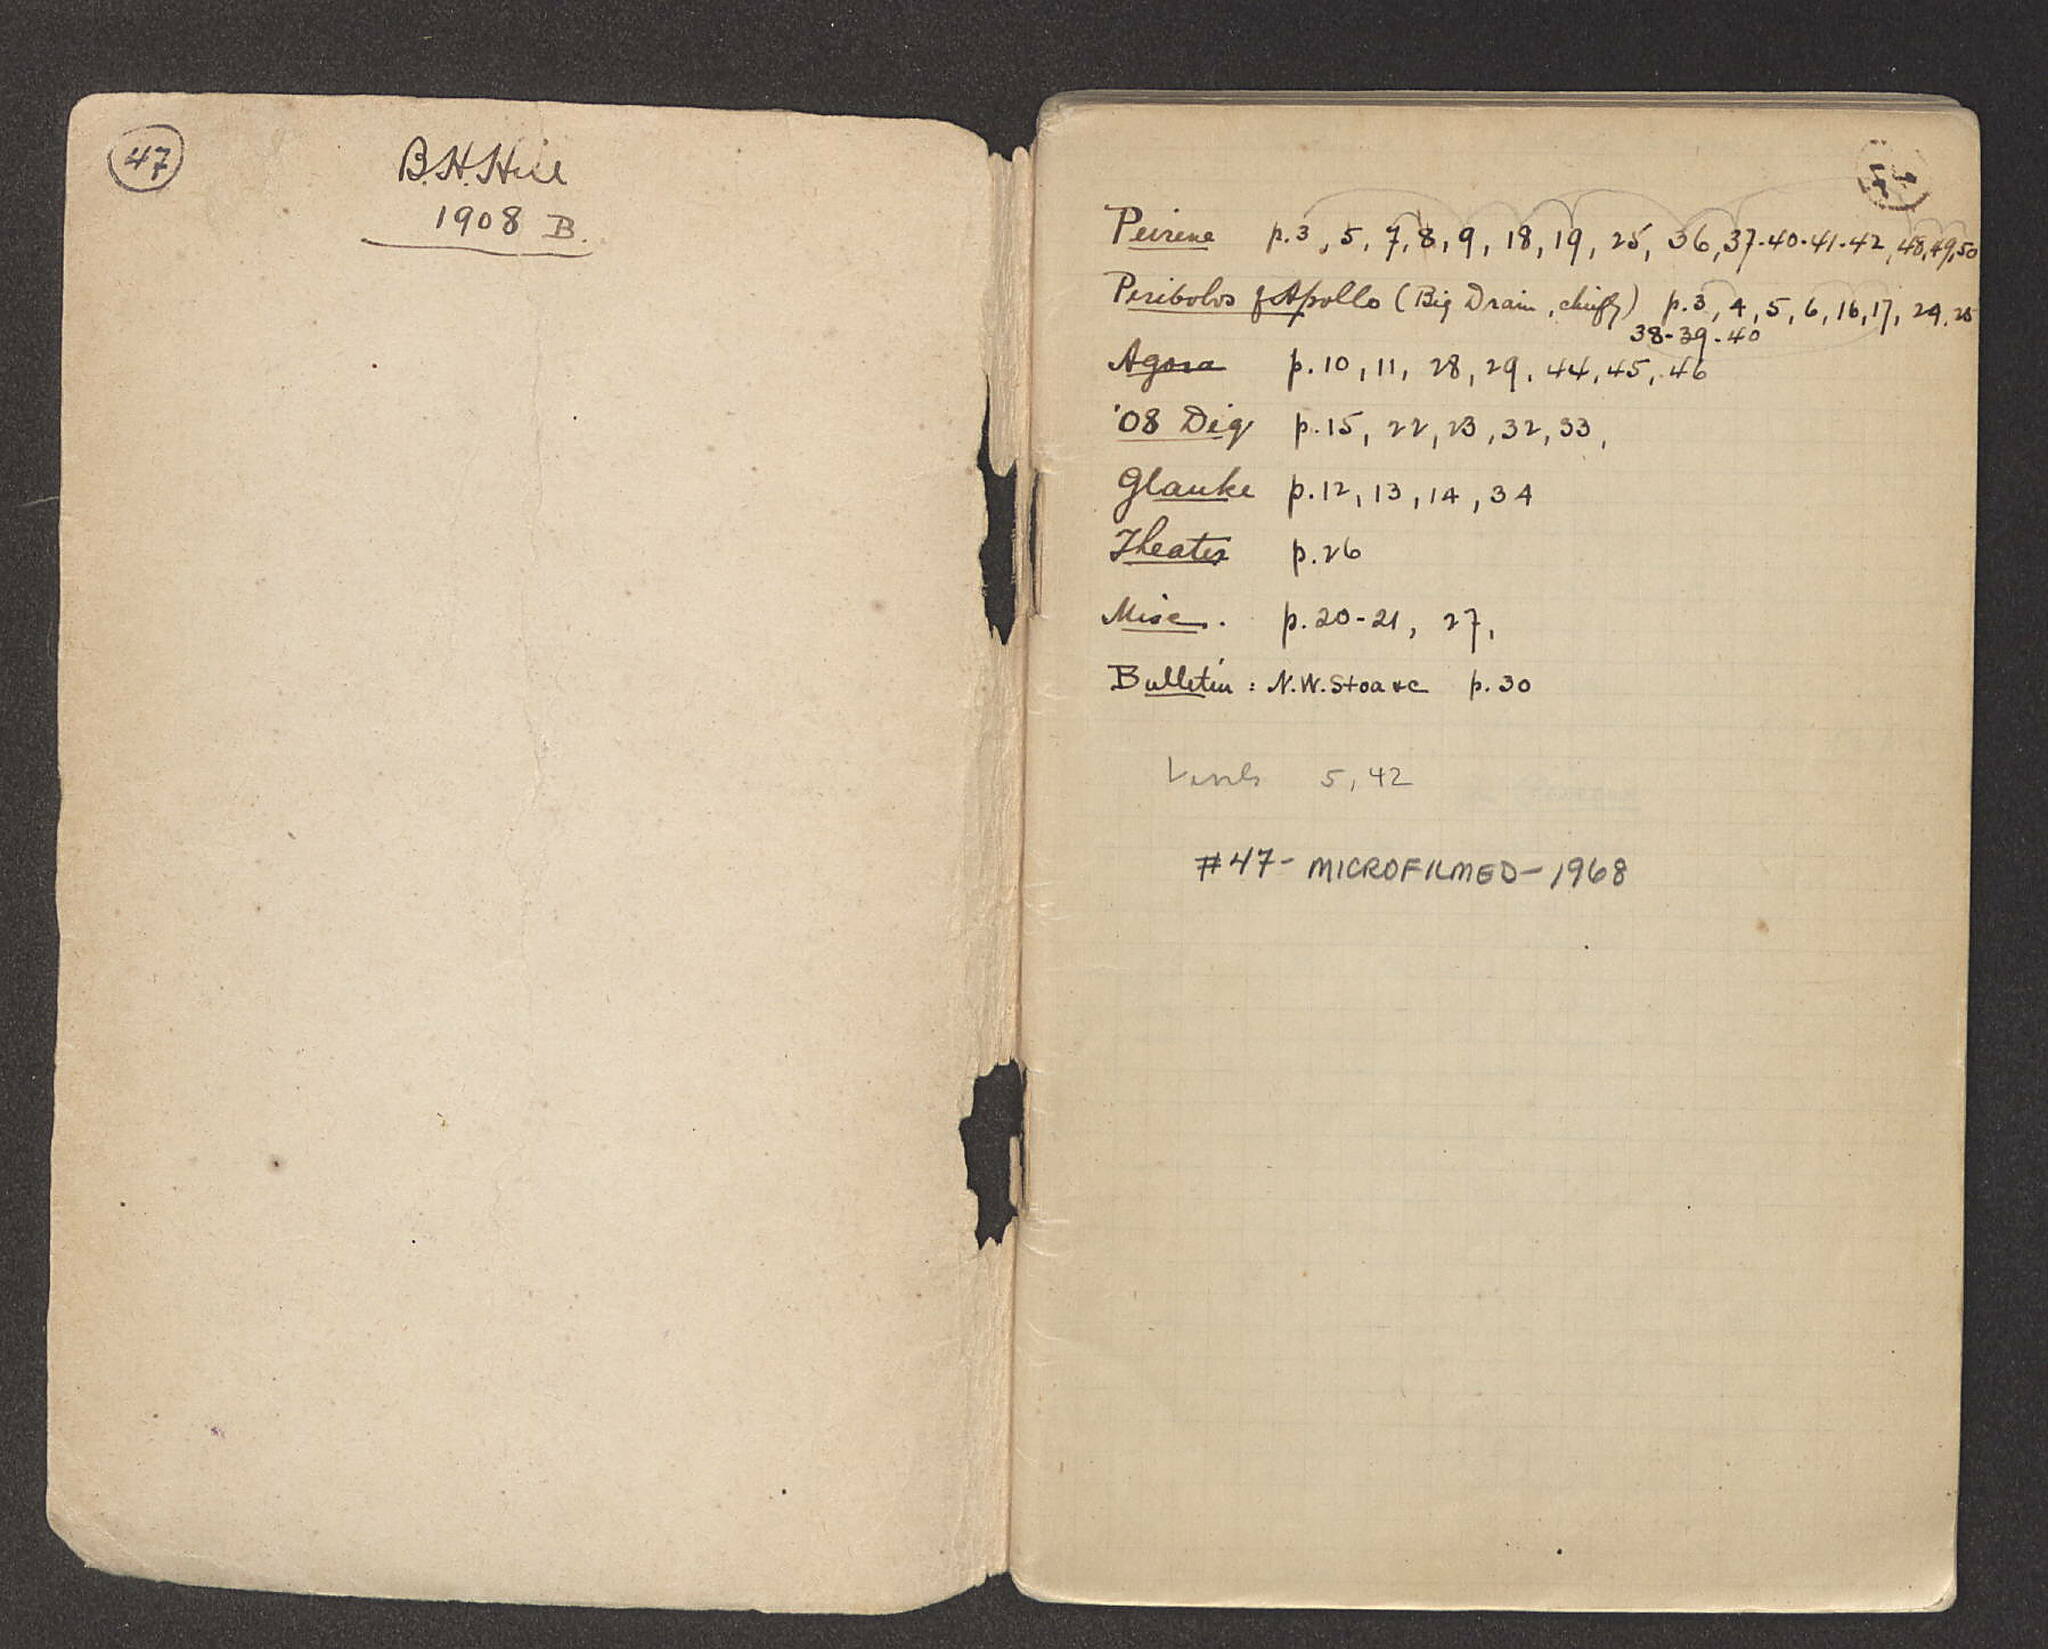 47
B.H.Hill
1908 B.
Peirene p.3, 5, 7, 8, 9, 18, 19, 25, 36, 37-40-41-42, 48, 49, 50
Peribolos of Apollo (Big Drain, chiefly) p.3, 4, 5, 6, 16, 17, 24, 25
38-39-40
Agora p.10, 11, 28, 29, 44, 45, 46
'08 Dig p.15, 22, 23, 32, 33,
Glauke p.12, 13, 14, 34
Theater p.26
Misc. p.20-21, 27,
Bulletin: N.W. Stoa &c p.30
5, 42
#47- MICROFILMED-1968